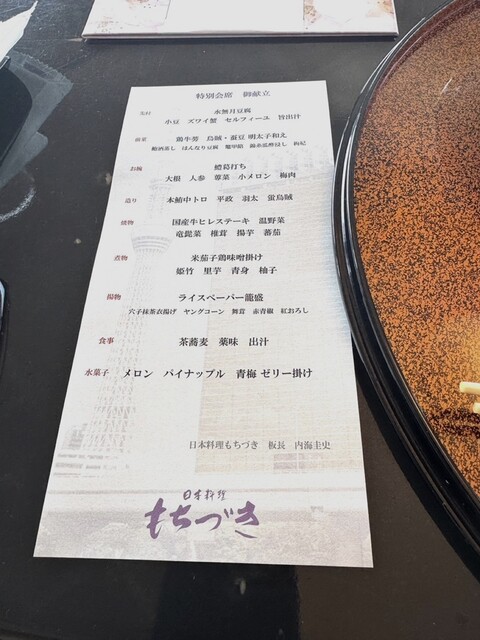 特別会席　御献立
先付　水無月豆腐
小豆　ズワイ蟹　セルフィーユ　旨出汁
前菜　鶏牛蒡　烏賊・蚕豆 明太子和え
鮑酒蒸し　ほんなり豆腐
お椀　鱧葛打ち
大根　人参　蓴菜　小メロン　梅肉
造り　本鮪中トロ　平政　羽太　蛍烏賊
焼物　国産牛ヒレステーキ　温野菜
竜髭菜　椎茸　揚芋　蕃茄
煮物　米茄子鶏味噌掛け
姫竹　里芋　青身　柚子
揚物　ライスペーパー籠盛
穴子抹茶衣揚げ　ヤングコーン　舞茸　赤青椒　紅おろし
食事　茶蕎麦　薬味　出汁
水菓子　メロン　パイナップル　青梅 ゼリー掛け
日本料理もちづき　板長　内海圭史
日本料理
もちづき